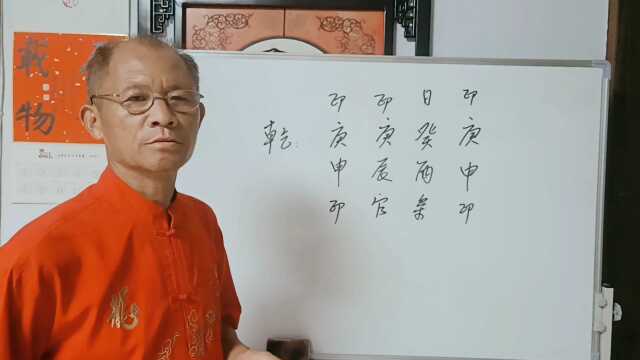 載
物
印 印 日 印
乾: 庚 庚 癸 庚
申 辰 酉 申
印 官 枭 印